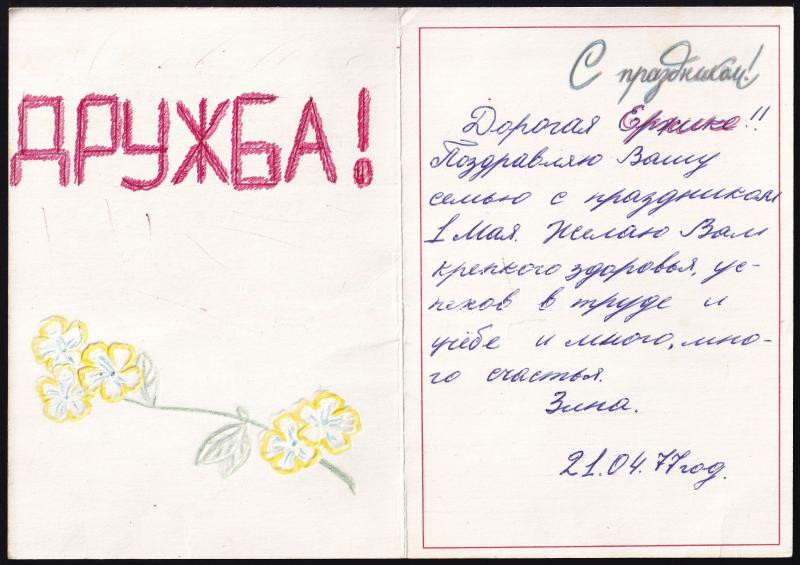 ДРУЖБА!
С праздником!
Дорогая Ержике!!
Поздравляю Вашу
семью с праздником
1 Мая. Желаю Вам
крепкого здоровья, ус-
пехов в труде и
учёбе и много, мно-
го счастья.
Зина.
21.04.77 год.